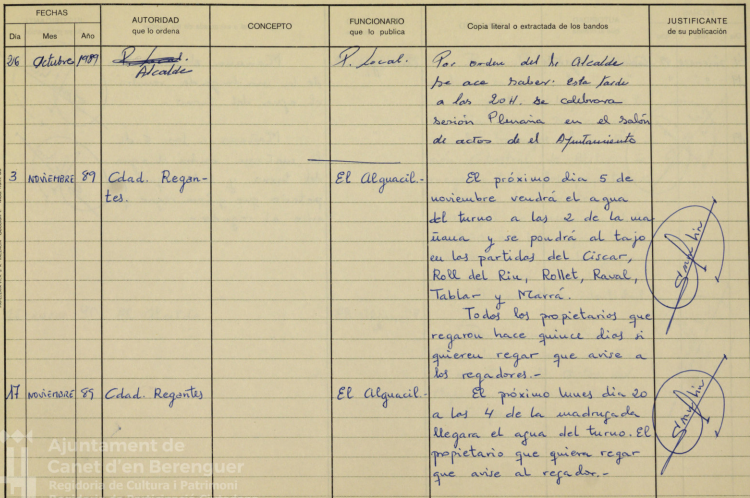 FECHAS
Dia Mes Año
AUTORIDAD
que lo ordena
CONCEPTO
FUNCIONARIO
que lo publica
Copia literal o extractada de los bandos
JUSTIFICANTE
de su publicación
26 Octubre 1989
P. Local.
Alcalde
P. Local.
Por orden del Sr Alcalde
se ace saber: Esta tarde
a las 20H. se celebrara
sesión Plenaria en el salón
de actos de el Ayuntamiento
3 NOVIEMBRE 89
Cdad. Regan-
tes.
El Alguacil.-
El próximo dia 5 de
noviembre vendrá el agua
del turno a las 2 de la ma
ñana y se pondrá al tajo
en las partidas del Ciscar,
Roll del Riu, Rollet, Raval,
Tablar y Marrá.
Todos los propietarios que
regaron hace quince dias si
quieren regar que avise a
los regadores.-
17 NOVIEMBRE 89
Cdad. Regantes
El Alguacil.-
El próximo lunes dia 20
a las 4 de la madrugada
llegara el agua del turno. El
propietario que quiera regar
que avise al regador.-
Ajuntament de
Canet d'en Berenguer
Regidoria de Cultura i Patrimoni